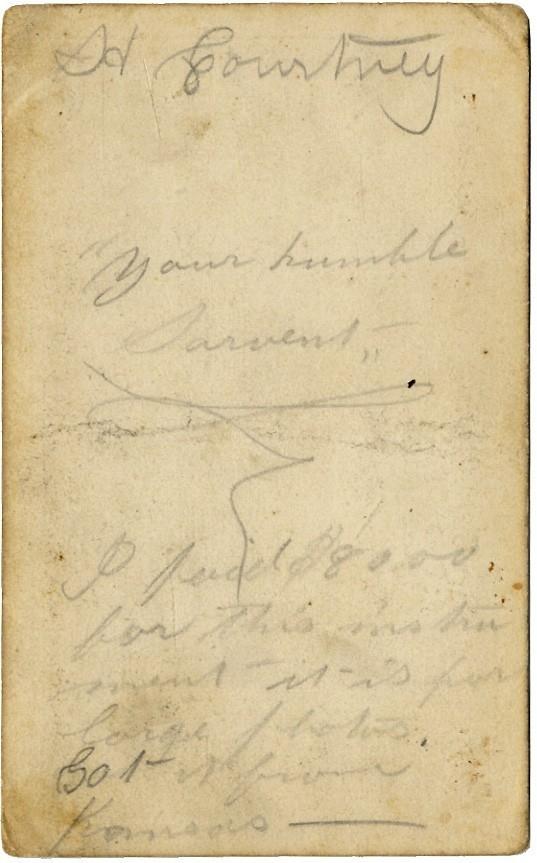 SH Courtney
Your humble
Sarvent „
I paid $80.00
for this instru
ment it is for
large photos.
Got it from
Kansas —